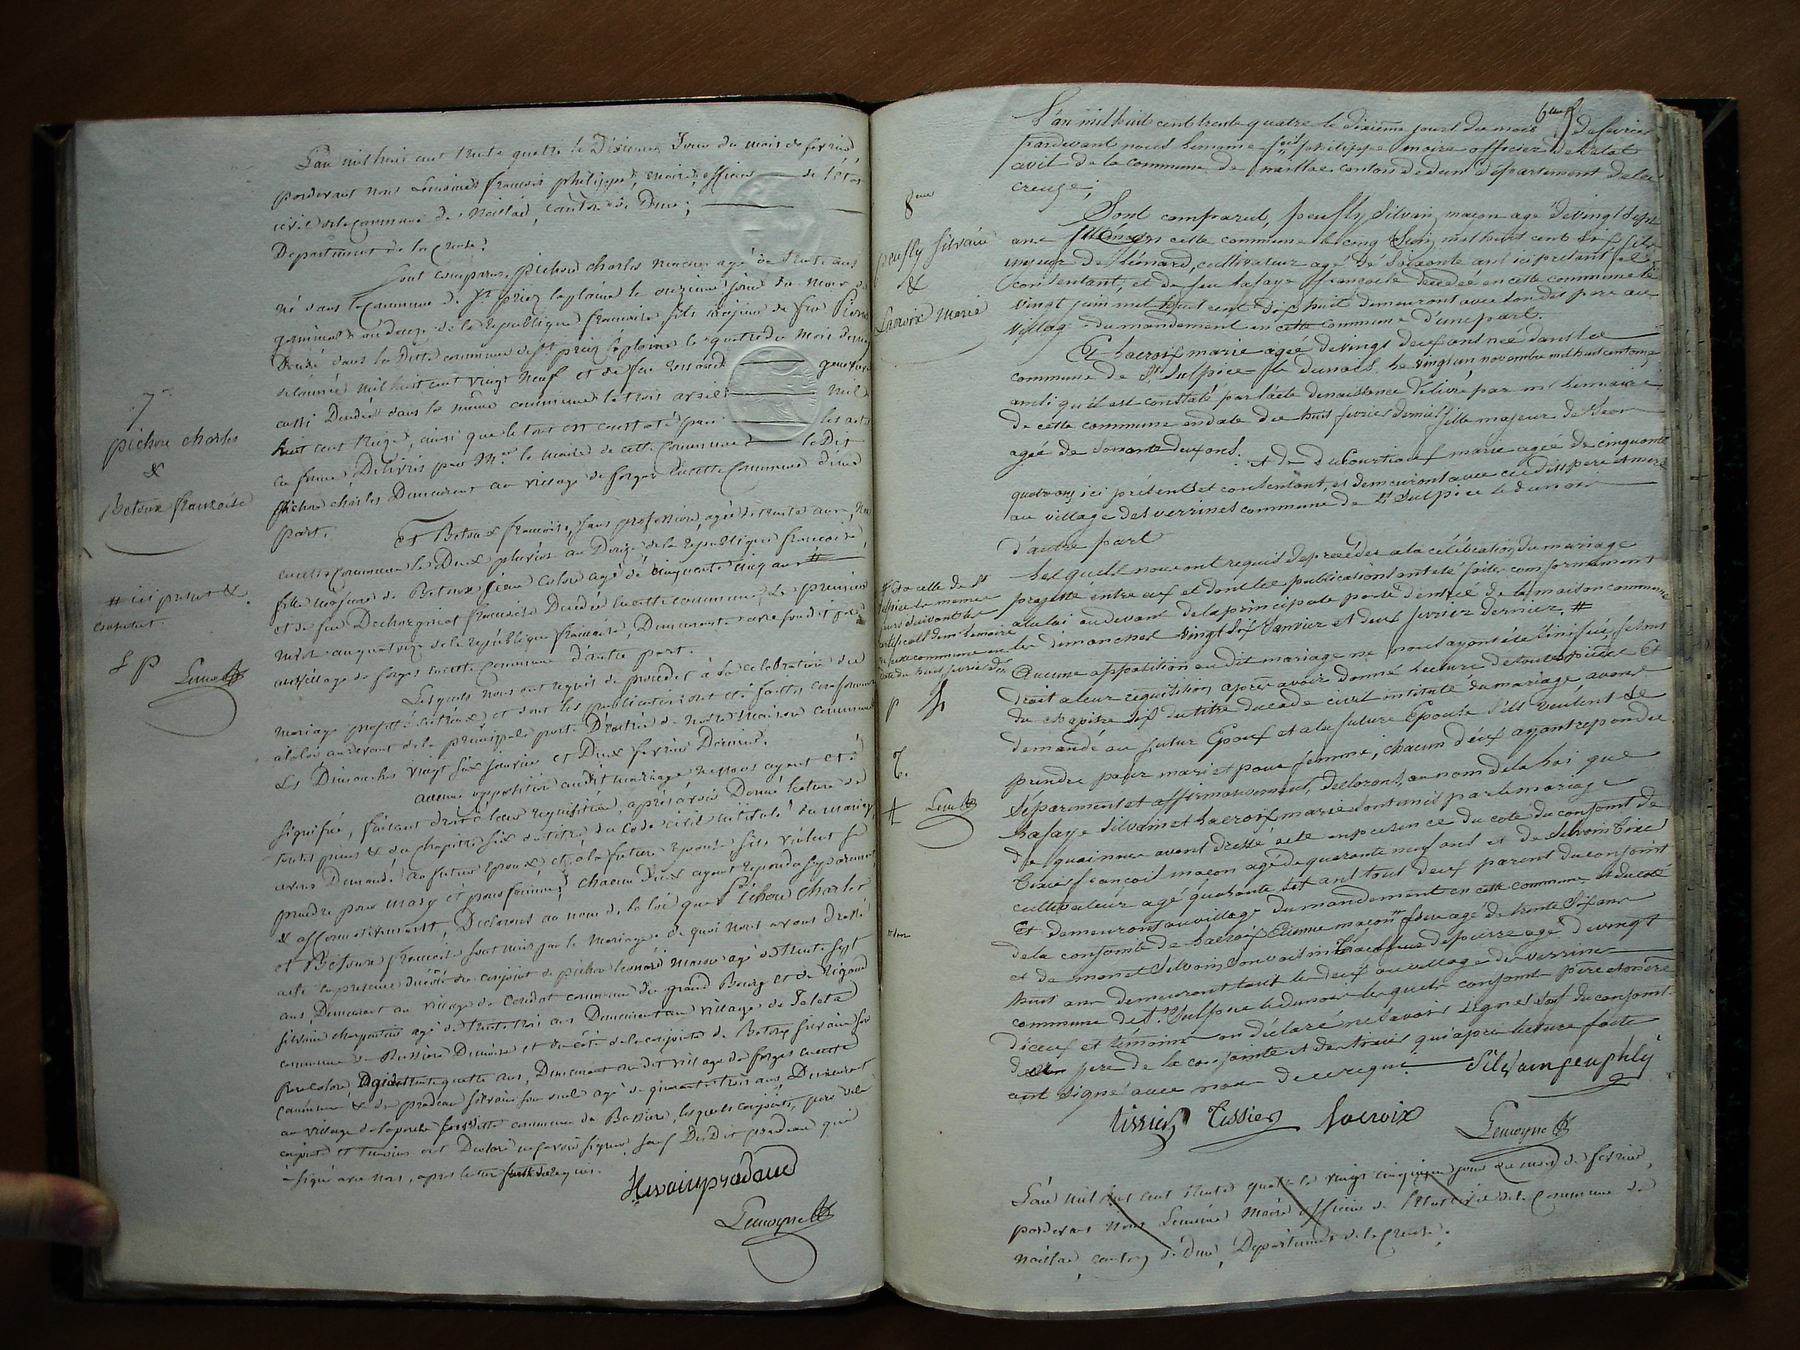 L'an mil huit cent trente quatre le Dixieme Jour du mois de fevrier
pardevant nous Lemoine françois philippe, maire, officier de l'état
civil de la Commune de Naillat, canton de Dun,
Departement de la Creuse;
Sont comparus, pichon charles agé de trente ans
né dans la Commune de St priez la plaine le onzieme jour du mois de
germinal an douze de la République française fils majeur de feu Pierre
décédé dans la ditte commune de St priez la plaine le quatre du mois
mil huit cent vingt neuf et de feu genevieve
aussi Decedée dans la même commune le trois avril mil
huit cent treize, ainsi que le tout est constaté par les actes
en forme Délivrés par Mr le maire de cette Commune le Dit
Pichon charles Demeurant au village de forges en cette Commune d'une
part.
Et Betoux françoise, sans profession, agée de trente ans, née
en cette Commune le Deux pluviose an Douze de la République françaisse,
fille majeure de Betoux Jean Colon agé de Cinquante cinq ans #
et de feu Dechorgniat françoise Decedée en cette commune, le premier
an quatorze de la république française, Demeurante
au village de forges en cette Commune d'autre part.
Lesquels nous ont requis de proceder à la celebration du
mariage projetté entr'eux et dont les publications ont été faittes conformement
à la loi au devant de la principale porte D'entrée de notre maison commune
Les Dimanches vingt six janvier et Deux fevrier Dernier.
aucune opposition au dit mariage ne nous ayant été
signifiée, faisant droit à leur requisition, après avoir Donné lecture de
toutes pieces & du chapitre six du titre du Code civil intitulé du mariage,
avons Demandé au futur Epoux et à la future Epouse s'ils veulent se
prendre pour mary et pour femme, chacun D'eux ayant repondu separement
& affirmativement, Declarons au nom de la loi que Pichon charles
et Betoux françoise sont unis par le mariage de quoi nous avons dressé
acte en presence du côté du conjoint de pichon leonard agé de trente sept
ans Demeurant au village de Coudat commune du grand Bourg et de Rigaud
silvain charpentier agé de trente trois ans Demeurant au village de
commune de Bussiere Dunoise et du côté de la conjointe de Betoux silvain son
frere colon agé de trente quatre ans, Demeurant au dit village de forges en cette
commune & de pradeau silvain son oncle agé de quarante trois ans Demeurant
au village de laporte susditte commune de Bussiere, lesquels conjoints, pere de la
conjointe et temoins ont Declaré ne savoir signer sauf Du Dit pradeau qui
a signé avec nous, après lecture faitte de requis.
Silvain pradeau
Lemoyne
7
pichon charles
&
Betoux françoise
# ici present &
consentant
S P
Lemoyne
L'an mil huit cent trente quatre le dixième jour du mois de fevrier
pardevant nous Lemoine fçois philippe maire officier de l'état
civil de la commune de naillac canton de dun département de la
creuse;
Sont comparus, peufly Silvain maçon agé de vingt sept
ans cette commune le cinq Juin mil huit cent six fils
majeur de Léonard, cultivateur agé de soixante ans ici présent et
consentant, et de feu Lafaye françoise decedée en cette commune le
vingt juin mil huit cent dix huit demeurant avec son dit pere au
village du mandement en cette commune d'une part.
Et Lacroix marie agée de vingt deux ans née dans la
commune de St Sulpice le dunois le vingt un novembre mil huit cent onze
ainsi qu'il est constaté par l'acte de naissance délivré par mr le maire
de cette commune en date du huit fevrier dernier fille majeur de Leon
agé de soixante deux ans. et de ducourtioux marie agée de cinquante
quatre ans ici présents et consentant, et demeurant avec ces dits pere et mere
au village des verrines commune de St Sulpice le dunois
d'autre part
Lesquels nous ont requis de procéder a la célébration du mariage
projetté entre eux et dont les publications ont été faites conformement
a la loi au devant de la principale porte d'entrée de la maison commune
les dimanches vingt six Janvier et deux fevrier dernier. #
Aucune opposition au dit mariage ne nous ayant été signifiée, faisant
droit a leur requisition après avoir donné lecture de toutes pièces Et
du chapitre six du titre du code civil intitulé du mariage avons
demandé au futur Epoux et a la future Epouse s'ils veulent se
prendre pour mari et pour femme, chacun d'eux ayant repondu
séparement et affirmativement, déclarons, au nom de la loi que
Lafaye Silvain et Lacroix marie sont unis par le mariage
de quoi nous avons dressé acte en presence du coté du conjoint de
Tixier françois maçon agé de quarante neuf ans et de Silvain Tixier
cultivateur agé quarante sept ans tous deux parent du conjoint
Et demeurant au village du mandement en cette commune et du coté
de la conjointe de Lacroix Etienne maçon frere agé de trente six ans
et de monet Silvain son voisin de pierre agé de vingt
huit ans demeurant tout le deux au village des verrines
commune de St Sulpice le dunois lesquels conjoint père et mère
d'iceux et témoins on déclaré ne savoir signer sauf du conjoint
du pere de la conjointe et des tixier qui après lecture faite
ont signé avec nous de ce requis. Silvain peuphly
tissier Tissier Lacroix
Lemoyne
8eme
peufly Silvain
&
Lacroix Marie
# Et a celle de St
Sulpice les memes
jours suivant le
certificat de mr le maire
de cette commune en
date du huit fevrier dr
Lemoyne
L'an mil huit cent trente quatre le vingt cinquieme jour du mois de fevrier,
pardevant nous Lemoine Maire officier de l'état civil de la Commune de
Naillat, canton de Dun, Departement de la Creuse,